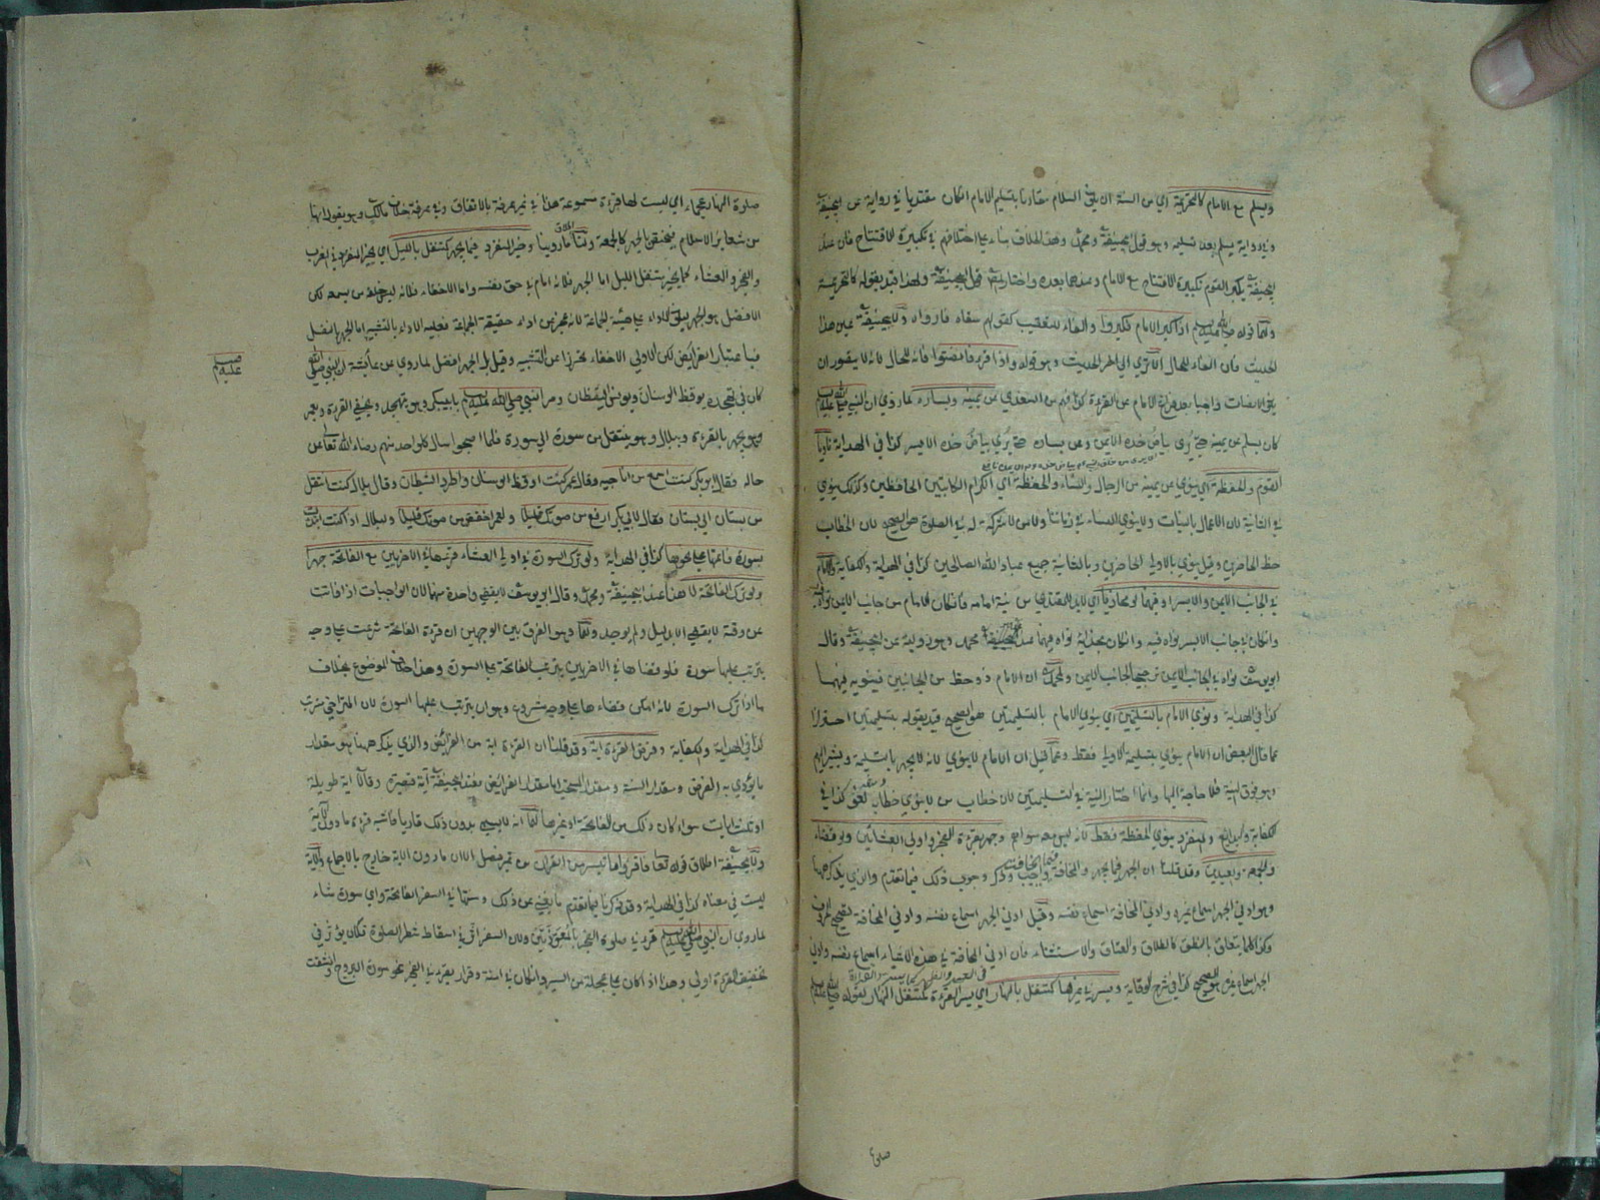 ويسلم مع الامام كالتحريمة اي من السنة ان السلام مقارنا بتسليم الامام ان كان مقتديا في رواية عن ابيحنيفة
وفي رواية يسلم بعد تسليمه وهو قول ابيحنيفة ومحمد وهذا الخلاف بناء على اختلافهم في تكبيرة الافتتاح فان عند
ابيحنيفة يكبر القوم تكبيرة الافتتاح مع الامام وعندهما بعده قول ابيحنيفة ولهذا قيد بقوله كالتحريمة
ولهما قوله صلى الله عليه وسلم اذا كبر الامام فكبروا والفاء للتعقيب ولابيحنيفة عين هذا
الحديث فان الفاء للحال الا ترى الى اخر الحديث وهو قوله واذا قرء فانصتوا فانه للحال لانه لا يتصور ان
الانصات واجبا بعد قراءة الامام عن القراءة عن يمينه ويساره لما روي ان النبي صلى الله عليه وسلم
كان يسلم عن يمينه حتى يرى بياض خده الايمن وعن يساره حتى يرى بياض خده الايسر كذا في الهداية ناويا
القوم والحفظة اي ينوي عن يمينه من الرجال والنساء والحفظة اي الكرام الكاتبين الحافظين وكذلك ينوي
في الثانية لان الاعمال بالنيات ولا ينوي النساء في زماننا ولا من لا شركة له في الصلوة هو الصحيح لان الخطاب
حظ الحاضرين وقيل ينوي بالاولى الحاضرين وبالثانية جميع عباد الله الصالحين كذا في الهداية والكفاية والامام
في الجانب الايمن والايسر او فيهما لو محاذيا اي لابد للمقتدي من نية امامه فان كان الامام من جانب الايمن نواه فيه
وان كان في جانب الايسر نواه فيه وان كان بحذائه نواه فيهما عند محمد وهو رواية عن ابيحنيفة وقال
ابو يوسف نواه في الجانب الايمن ترجيحا لجانب الايمن ولمحمد ان الامام ذو حظ من الجانبين فينويه فيهما
كذا في الهداية وينوي الامام بالتسليمتين اي ينوي الامام بالتسليمتين هو الصحيح قيد بقوله بتسليمتين احترازا
عما قال البعض ان الامام ينوي بتسليمة الاولى فقط وعما قيل ان الامام لا ينوي لانه يجهر بالتسليم ويشير اليهم
وهو فوق النية فلا حاجة اليها وانما اختار النية في التسليمتين لان خطاب من لا ينوي خطابه لغو كذا في
الكفاية والمنفرد ينوي الحفظة فقط لانه ليس معه سواهم وجهر بقراءة الفجر واولي العشائين ولو قضاء
والجمعة والعيدين وقد قلنا ان الجهر فيما يجهر والمخافتة واجب وذكر وجوب ذلك فيما تقدم والذي يذكر ههنا
وهو ادنى الجهر اسماع غيره وادنى المخافتة اسماع نفسه وقيل ادنى الجهر اسماع نفسه وادنى المخافتة تصحيح الحروف
وكذا كلما يتعلق بالنطق كالطلاق والعتاق والاستثناء فان ادنى المخافتة في هذه الاشياء اسماع نفسه وادنى
الجهر اسماع غيره هو الصحيح كذا في شرح الوقاية ويسر في غيرها كمتنفل بالنهار اي يسر القراءة كمتنفل النهار لقوله صلى الله عليه وسلم
صلوة
صلوة النهار عجماء اي ليست لها قراءة مسموعة هذا في غير عرفة بالاتفاق وفي عرفة خلاف مالك وهو يقول انها
من شعاير الاسلام فيختص بالجهر كالجمعة ولنا ما روينا وخير المنفرد فيما يجهر كمتنفل بالليل اي يخير المنفرد في المغرب
والفجر والعشاء كما يخير متنفل الليل اما الجهر فلانه امام في حق نفسه واما الاخفاء فلانه ليس خلفه من يسمعه لكن
الافضل هو الجهر ليكون الاداء على هيئة الجماعة لانه عجز عن اداء حقيقة الجماعة فعليه الاداء بالتشبيه اما الجهر لتنفل
فباعتبار الفرايض لكن الاولى الاخفاء تحرزا عن التشبيه وقيل بل الجهر افضل لما روي عن عائشة ان النبي صلى الله
صلى عليه وسلم
كان في تهجده يوقظ الوسنان ويونس اليقظان ومر النبي صلى الله عليه وسلم بابي بكر وهو يتهجد ويخفي القراءة وبعمر
وهو يجهر بالقراءة وببلال وهو ينتقل من سورة الى سورة فلما اصبحوا سال كل واحد منهم رضاء الله تعالى عن
حاله فقال ابو بكر كنت اسمع من اناجيه وقال عمر كنت اوقظ الوسنان واطرد الشيطان وقال بلال كنت انتقل
من بستان الى بستان فقال لابي بكر ارفع من صوتك قليلا ولعمر اخفض من صوتك قليلا ولبلال اذا ابتدات
بسورة فاتمها على نحوها كذا في الهداية ولو ترك السورة في اولي العشاء قرءها في الاخريين مع الفاتحة جهرا
ولو ترك الفاتحة لا هذا عند ابيحنيفة ومحمد وقال ابو يوسف لا يقضي واحدة منهما لان الواجبات اذا فاتت
عن وقته لا يقضى الا بدليل ولم يوجد ولهما وهو الفرق بين الوجهين ان قراءة الفاتحة شرعت على وجه
يترتب عليها سورة فلو قضاها في الاخريين يترتب الفاتحة على السورة وهذا خلاف الموضوع بخلاف
ما اذا ترك السورة لانه امكن قضاءها على وجه مشروع وهو ان يترتب عليها السورة لان المتراخي مترتب
كذا في الهداية والكفاية وفرض القراءة اية وقد قلنا ان القراءة اية من الفرائض والذي يذكر ههنا هو مقدار
ما يؤدي به الفرض ومقدار السنة ومقدار المستحب اما مقدار الفرائض فعند ابيحنيفة آية قصيرة وقالا اية طويلة
او ثلث ايات سواء كان ذلك من الفاتحة او غيرها لهما انه لا يسمى بدون ذلك قاريا فاشبه قراءة ما دون الآية
ولابيحنيفة اطلاق قوله تعالى فاقرؤا ما تيسر من القران من غير فصل الا ان ما دون الاية خارج بالاجماع والآية
ليست في معناه كذا في الهداية وقد ذكرنا فيما تقدم ما يغني عن ذلك وسنتها في السفر الفاتحة واي سورة شاء
لما روي ان النبي صلى الله عليه وسلم قرء في صلوة الفجر بالمعوذتين ولان السفر اثر في اسقاط شطر الصلوة فكان يؤثر في
تخفيف القراءة اولى وهذا اذا كان على عجلة من السير وان كان في امنة وقرار يقرء في الفجر نحو سورة البروج وانشقت